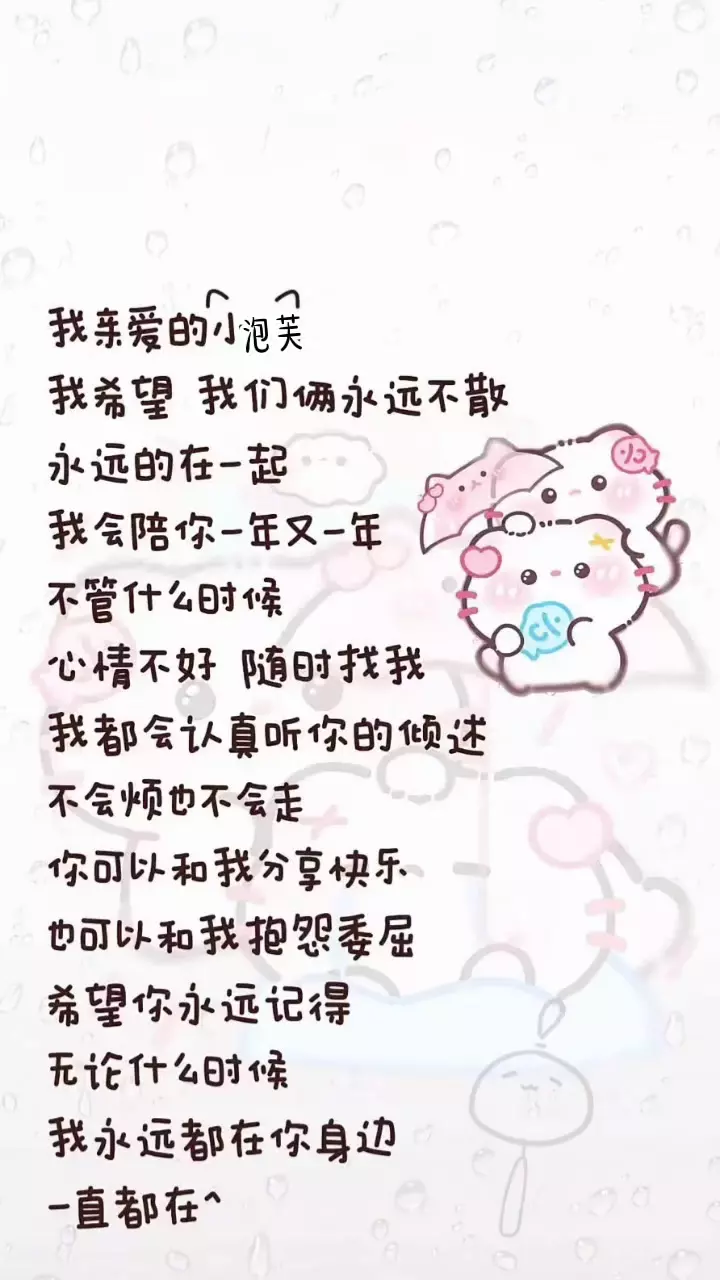 我亲爱的小泡芙
我希望 我们俩永远不散
永远的在一起
我会陪你一年又一年
不管什么时候
心情不好 随时找我
我都会认真听你的倾述
不会烦也不会走
你可以和我分享快乐
也可以和我抱怨委屈
希望你永远记得
无论什么时候
我永远都在你身边
一直都在^